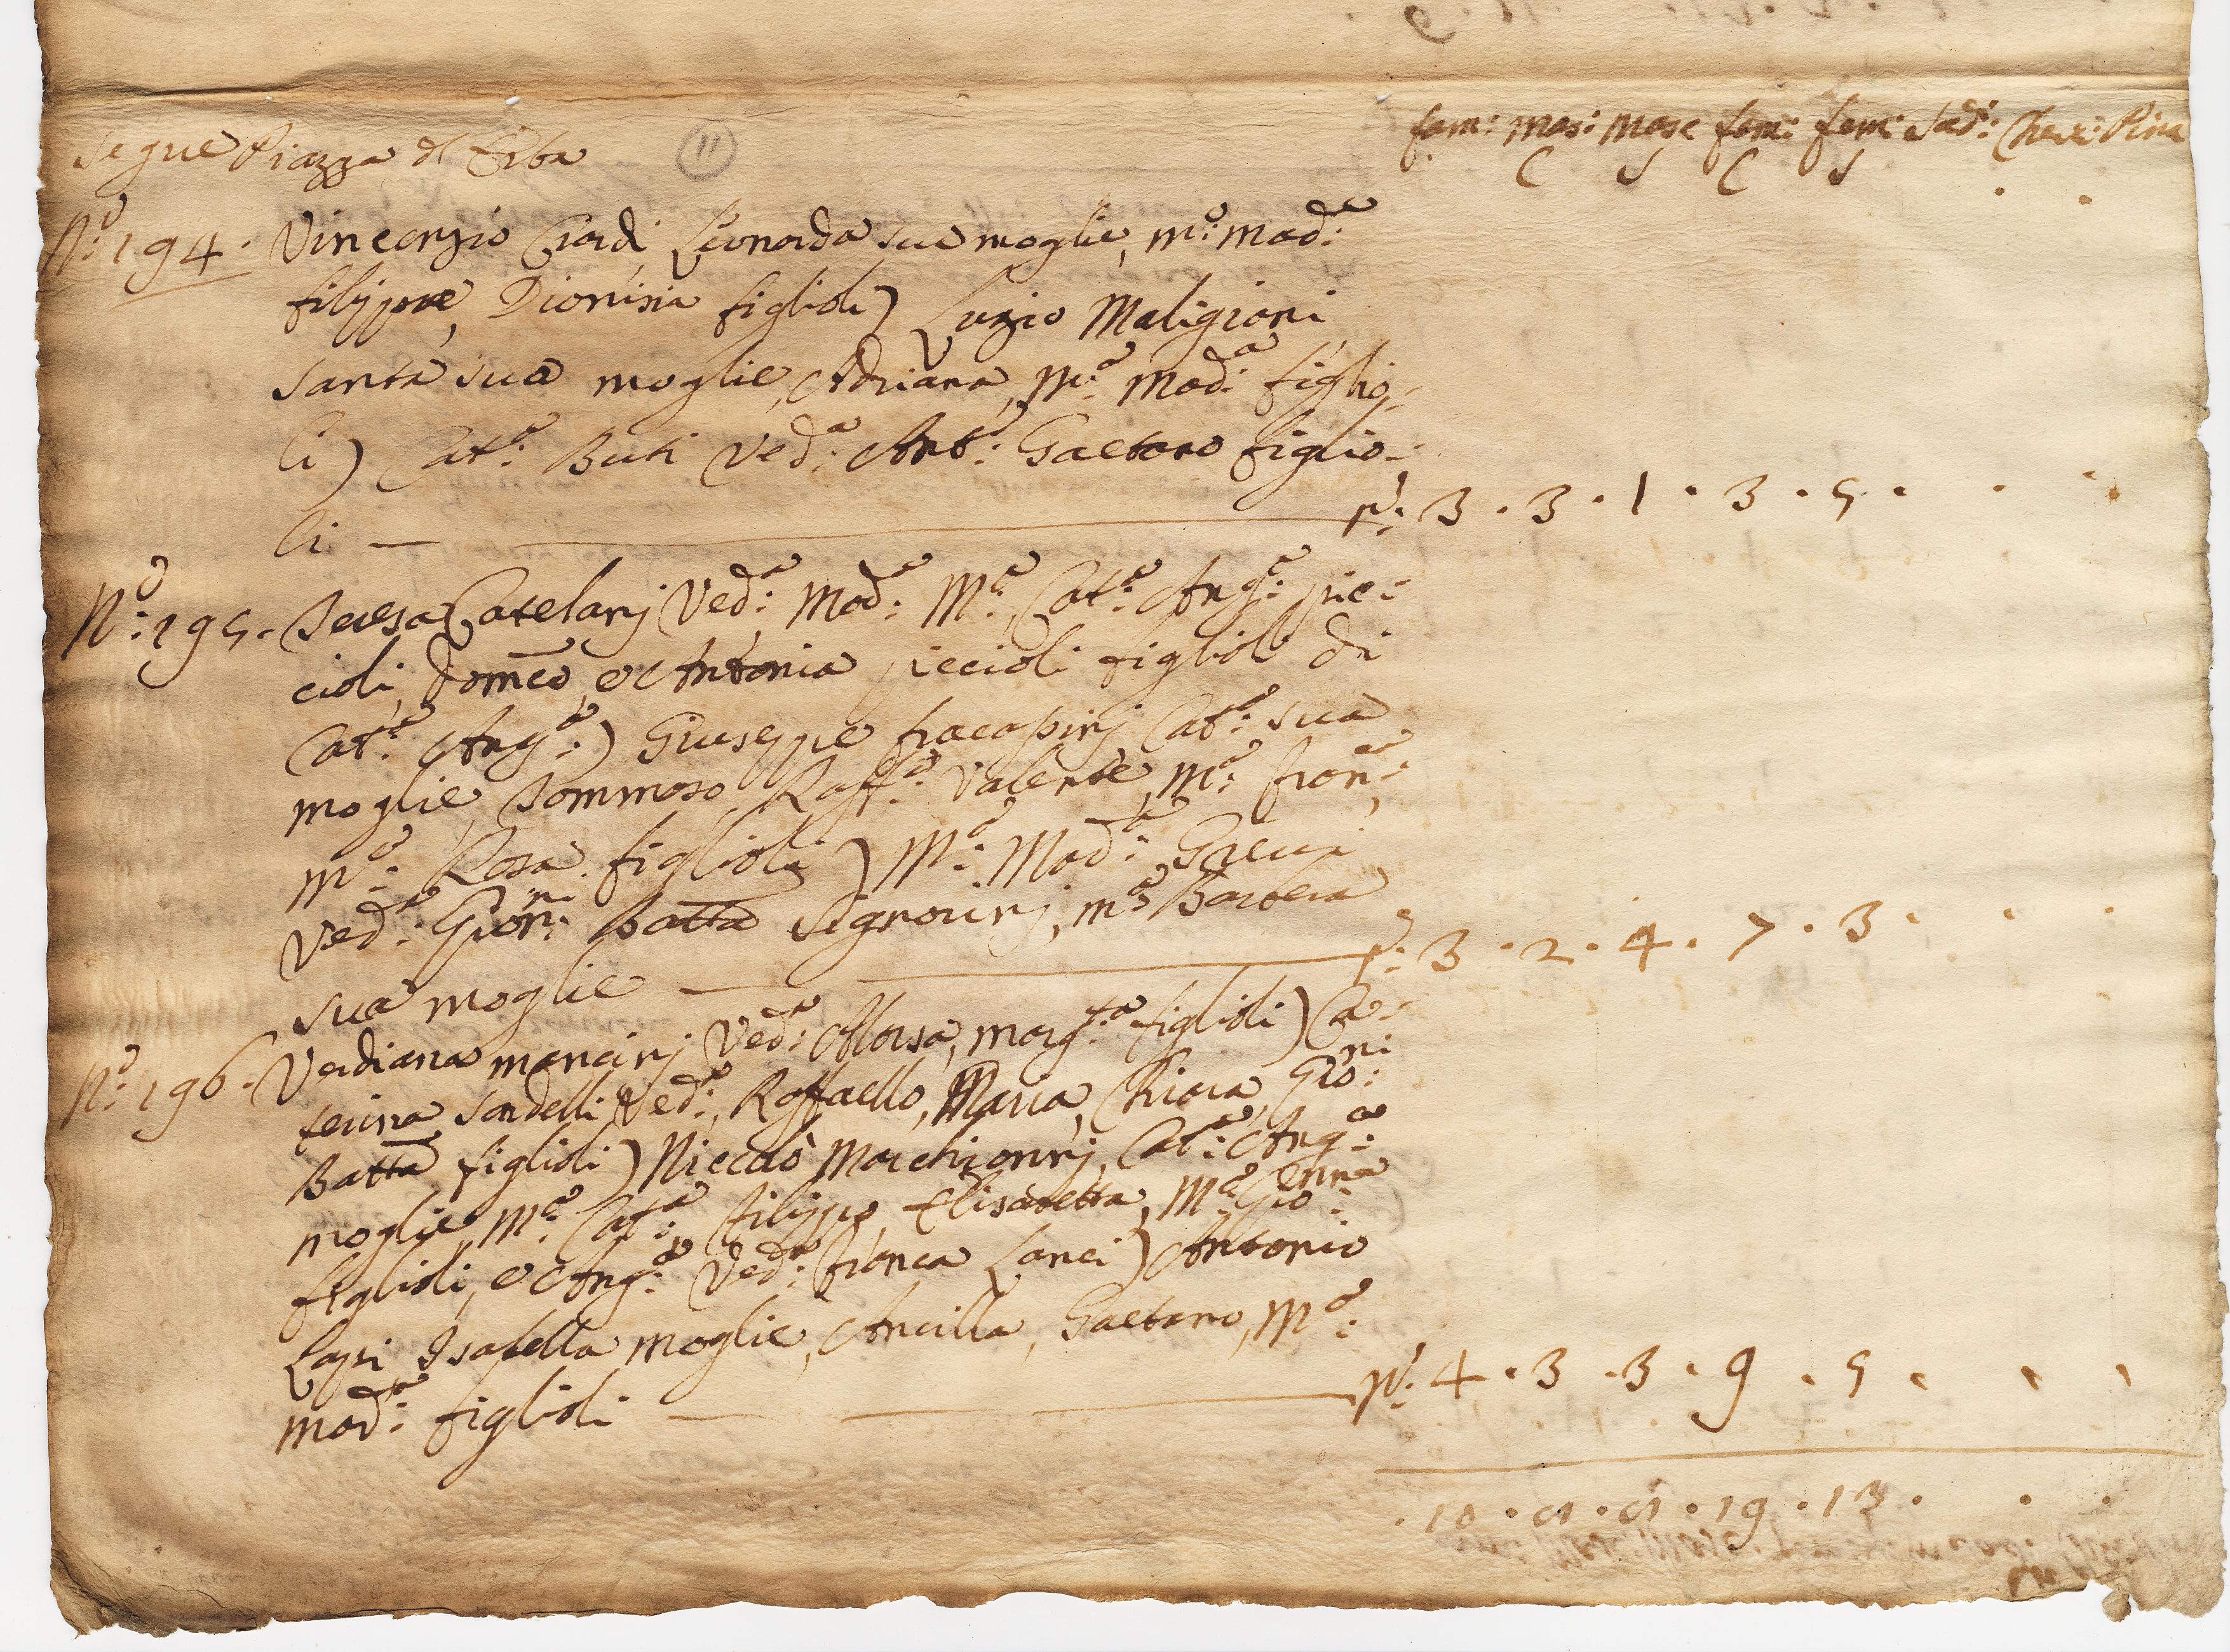 fam: Mas: Masc fem: fem: Sad: Cher: Pina
C S C S
Segue Piazza d'Erba 11
N.o 194. Vincenzio Ciardi, Leonarda sua moglie, M.a Mad.a
filippo, Dionisia figlioli) Luzio Maligioni
Santa sua moglie, Adriana, M.a Mad.a figlio-
li) Cat.a Buti Ved.a Ant.o Gaetano figlio-
li — n.o 3 . 3 . 1 . 3 . 5 .
N.o 195. Teresa Catelanj Ved.a Mad.a M.a, Cat.a Ang.a pic-
cioli, Dom.co, e Antonia piccioli figlioli di
Cat.a Ang.a) Giuseppe fracassinj Cat.a sua
moglie, Tommaso, Raff.o Valente, M.a fran.a,
M.a Rosa figlioli) M.a Mad.a Greci
Ved.a Giov.ni Batta Signorinj, M.a Barbera
sua moglie — n.o 3 . 2 . 4 . 7 . 3 .
N.o 196. Verdiana mancinj Ved.a Alorsa, Marg.ta figlioli) Ca-
terina Sardelli Ved.a, Raffaello, Maria, Chiara, Gio:ni
Batta figlioli) Niccolò Marchionnj, Cat.a Ang.a
moglie, M.a Cat.a filippo, Elisabetta, M.a Gio:enna
figlioli, e Ang.a Ved.a franca Lanci) Antonio
Lapi, Isabella moglie, Ancilla, Gaetano, M.a
Mad.a figlioli — n.o 4 . 3 . 3 . 9 . 5 .
. 10 . 01 . 01 . 19 . 13 .